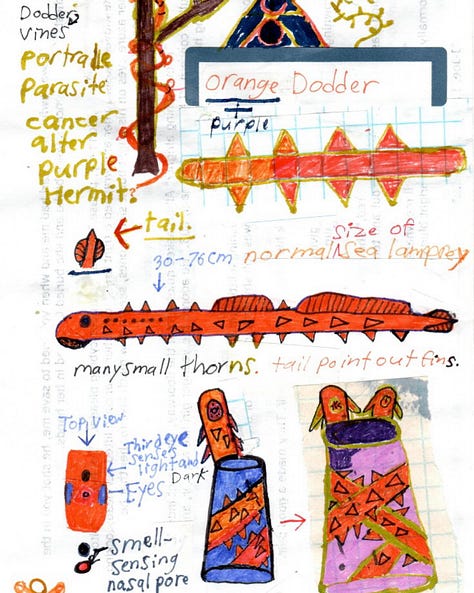 Dodder
vines
portraile
Parasite
cancer
alter
purple
Hermit:
orange Dodder
+
purple
tail.
30-76cm
size of
normal Sea lamprey
many small thorns. tail point out fins.
Top view
Third eye
senses
light and
Dark
Eyes
smell-
sensing
nasal pore